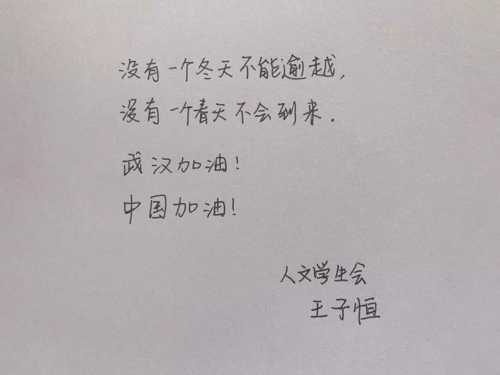 没有一个冬天不能逾越，
没有一个春天不会到来．
武汉加油！
中国加油！
人文学生会
王子恒